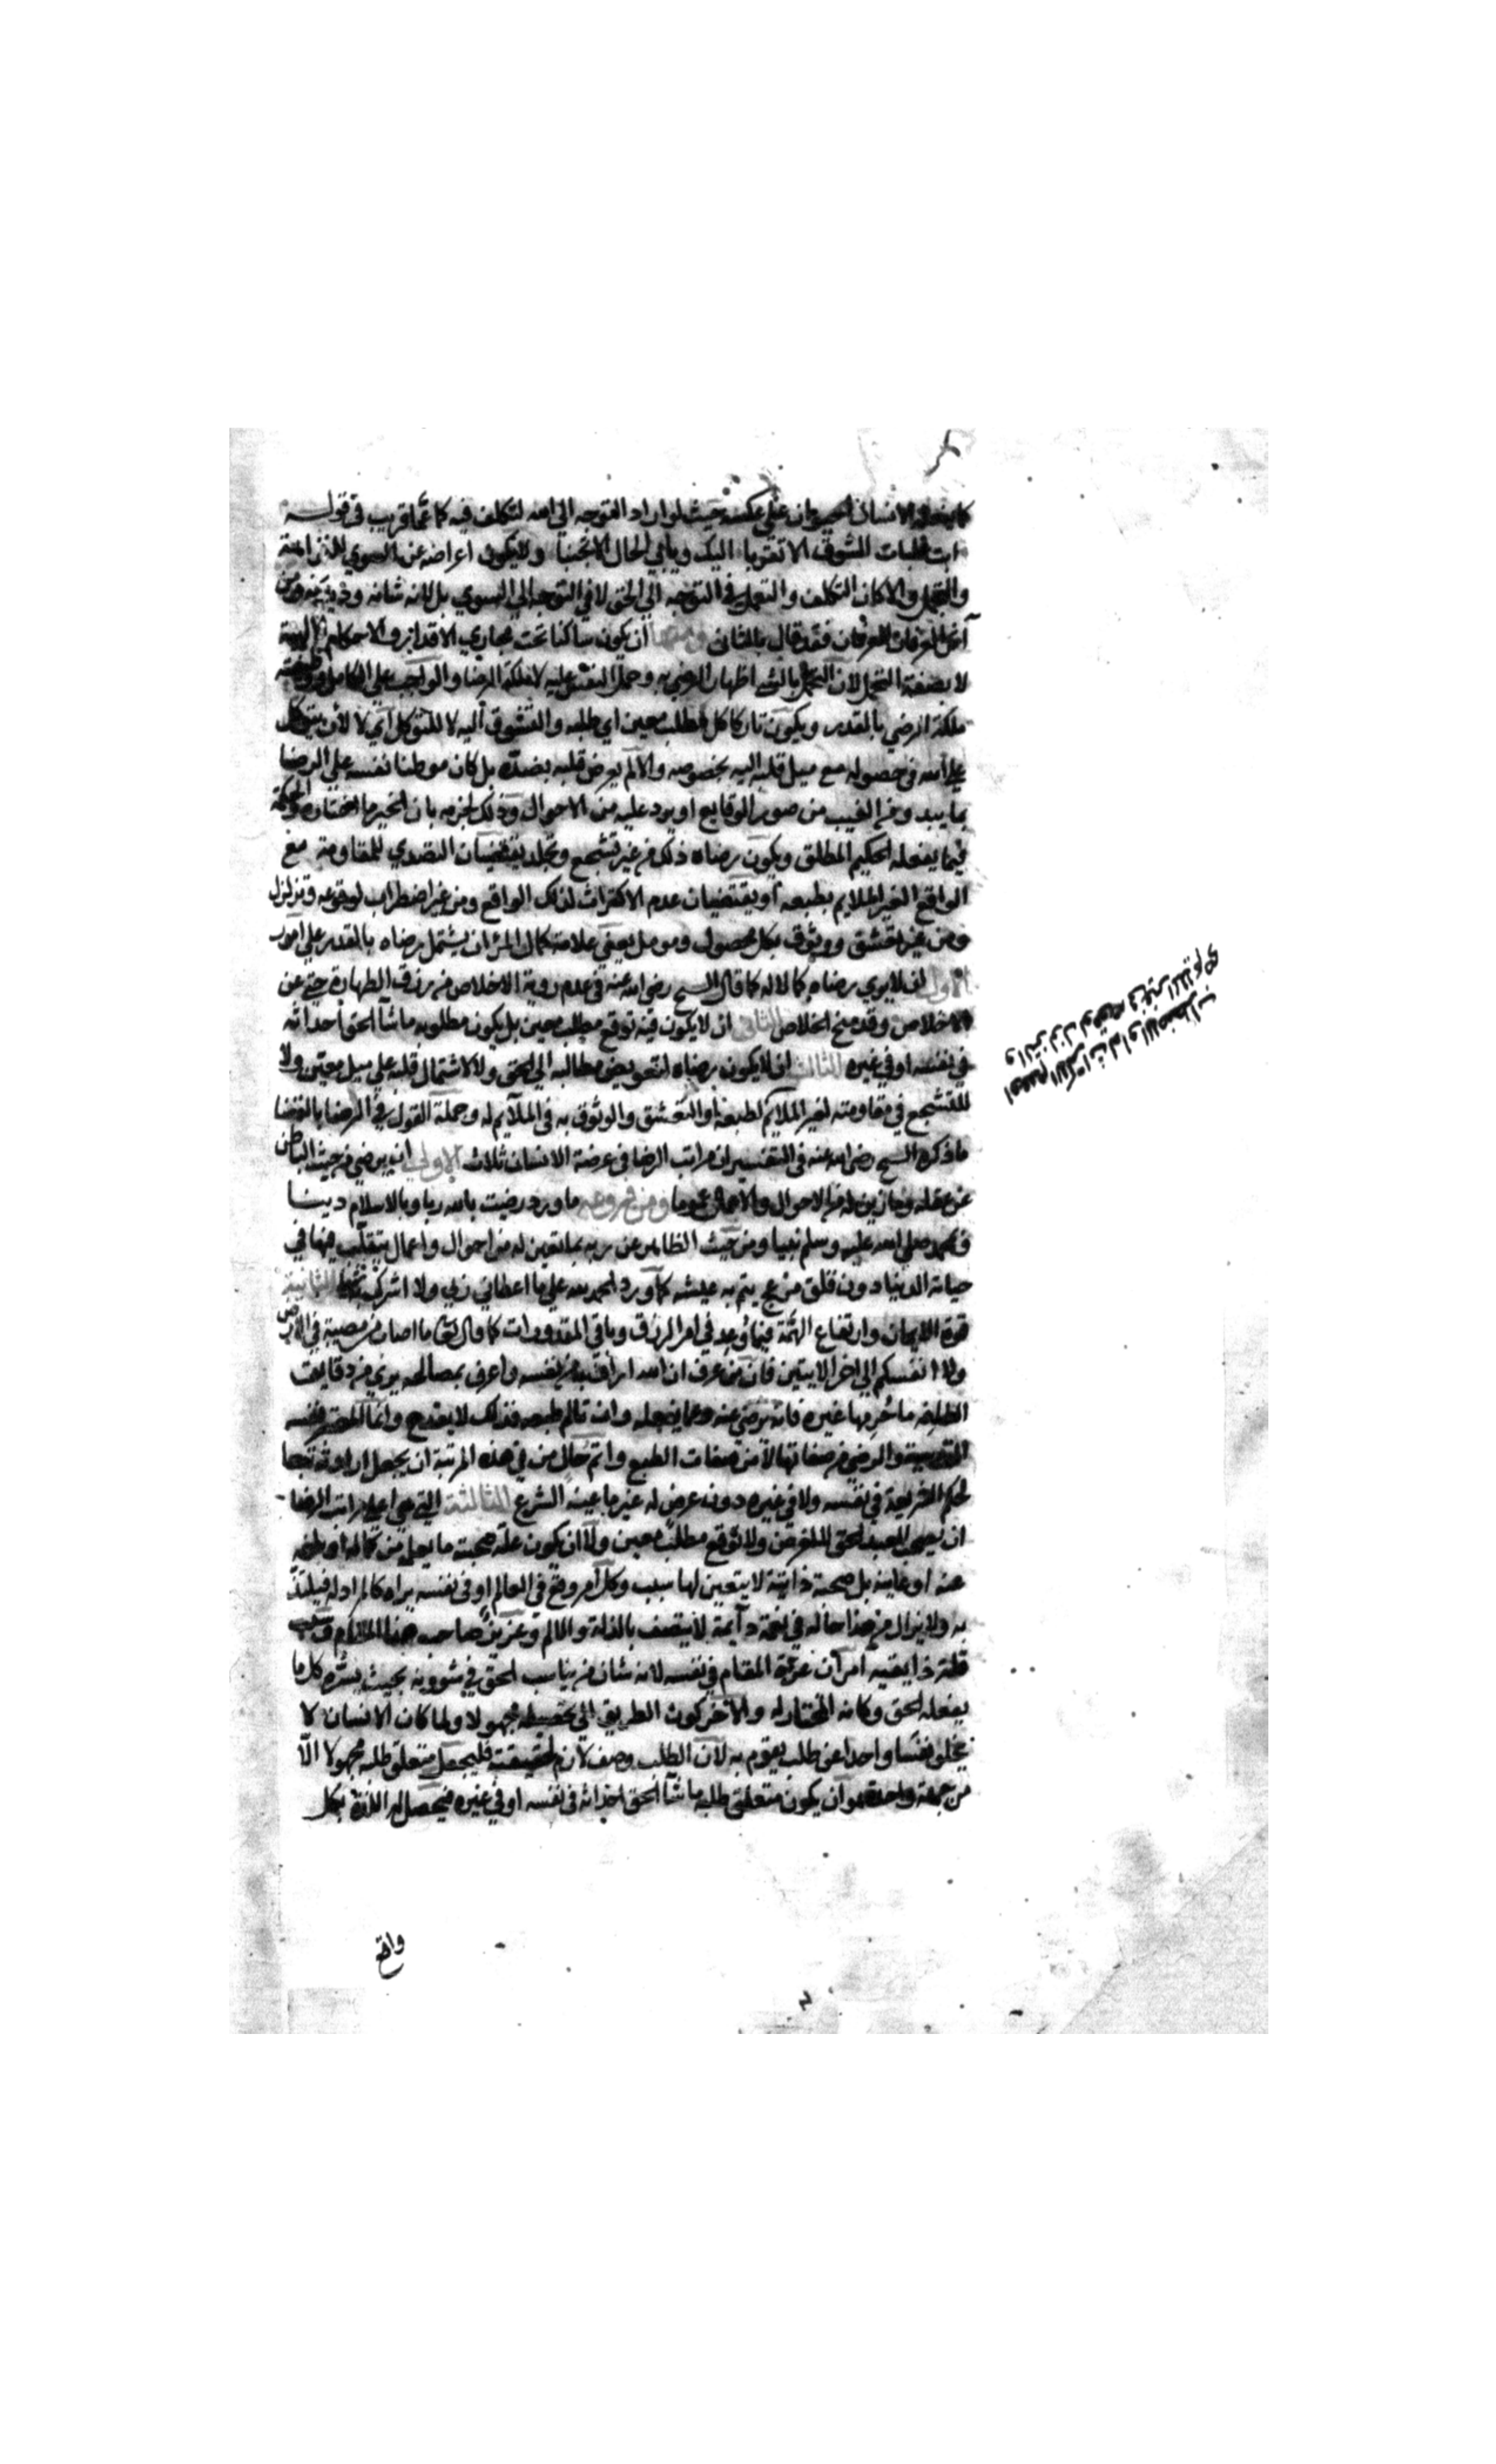 كما يفعله الانسان الحيوان علي عكسه حيث لو اراد التوجه الي الله لتكلف فيه كما عما قريب في قوله
ابت غلبات الشوق الا تقربا اليك ويابي الحال الا تجنبا ولا يكون اعراضه عن السوي
والتجمل والا كان التكلف والتعمل في التوجه الي الحق لا في التوجه الي السوي بل لانه شانه
العرفان فقد قال بالثاني ومنها ان يكون ساكنا تحت مجاري الاقدار والاحكام الالهية
لا بصفة التجمل لان التجمل بالشي اظهار الرضي به وحمل النفس عليه لا ملكة الرضا والواجب علي الكامل
ملكة الرضي بالمقدر ويكون تاركا كل مطلب معين اي طلبه والتشوق اليه لا للتوكل اي لا لأن يتوكل
علي الله في حصوله مع ميل قلبه اليه بخصوصه والا لم يعرض قلبه بضده بل كان موطنا نفسه علي الرضا
بما يبدو من الغيب من صور الوقايع او يرد عليه من الاحوال وذلك لجزمه بان الخير ما اختاره والحكمة
فيما يفعله الحكيم المطلق ويكون رضاه ذلك من غير تشجع وتجلد يقتضيان التصدي للمقاومة مع
الواقع الغير الملايم بطبعه او يقتضيان عدم الاكتراث لذلك الواقع ومن غير اضطراب لوقوعه وتزلزل
ومن غير تعشق ووثوق بكل محصول ومومل يعني علامة كمال المرء ان يشتمل رضاه بالمقدر علي امور
الاول ان لا يري رضاه كمالا له كما قال الشيخ رضي الله عنه في عدم روية الاخلاص من رزق الطهارة حتي عن
الاخلاص وقد منح الخلاص الثاني ان لا يكون فيه توقع مطلب معين بل يكون مطلوبه ما شاء الحق احداثه
في نفسه او في غيره الثالث ان لا يكون رضاه لتعويض مطالبه الي الحق ولا لاشتمال قلبه علي ميل معين ولا
للتشجع في مقاومته لغير الملايم لطبعه او التعشق والوثوق به في الملايم له وجملة القول في الرضا بالقضا
ما ذكره الشيخ رضي الله عنه في التفسير ان مراتب الرضا في عرصة الانسان ثلاث الاولي ان يرضي من حيث الباطن
عن عقله وما زين له من الاحوال والاعمال عموما ومن فروعه ما ورد رضيت بالله ربا وبالاسلام دينا
وبمحمد صلي الله عليه وسلم نبيا ومن حيث الظاهر عن ربه بما تعين له من احوال واعمال يتقلب فيها في
حياته الدنيا دون قلق مزعج يتم به عيشه كما ورد الحمد لله علي ما اعطاني ربي ولا اشرك به شيا الثانية
قوة الايمان وارتفاع التهمة فيما وعد في امر الرزق وباقي المقدورات كما قال تعالي ما اصاب من مصيبة في الارض
ولا في انفسكم الي اخر الايتين فان من عرف ان الله ارأف به من نفسه واعرف بمصالحه يري من دقايق
الطافه ما حرمها غيره فانه يرضي عنه وعما يفعله وان تالم طبعه فذلك لا يقدح وانما المعتبر نفسه
القدسية والرضي من صفاتها لا من صفات الطبع واتم حال من في هذه المرتبة ان يجعل ارادته تبعا
لحكم الشريعة في نفسه ولا في غيره دون غرض له غير ما عينه الشرع الثالثة التي هي اعلي مراتب الرضا
ان يصحب العبد الحق لا لغرض ولا توقع مطلب معين ولا ان يكون علة صحبته ما يعلم من كماله او بلغه
عنه او عاينه بل صحبة ذاتية لا يتعين لها سبب وكل امر وقع في العالم او في نفسه يراه كالمراد له فيلتذ
به ولا يزال من هذا حاله في نعمة دائمة لا يتصف بالذلة والالم وعزيز صاحب هذا المقام وسبب
قلة ذايقيه امران عزة المقام في نفسه لانه شان من يناسب الحق في شوونه بحيث يسره كل ما
يفعله الحق وكانه المختار له والآخر كون الطريق الي تحصيله مجهولا ولما كان الانسان لا
يخلو نفسا واحدا عن طلب يقوم به لان الطلب وصف لازم لحقيقته فليجعل متعلق طلبه مجهولا الا
من جهة واحدة وهو ان يكون متعلق طلبه ما شاء الحق احداثه في نفسه او في غيره فيحصل له اللذة بكل
واقع